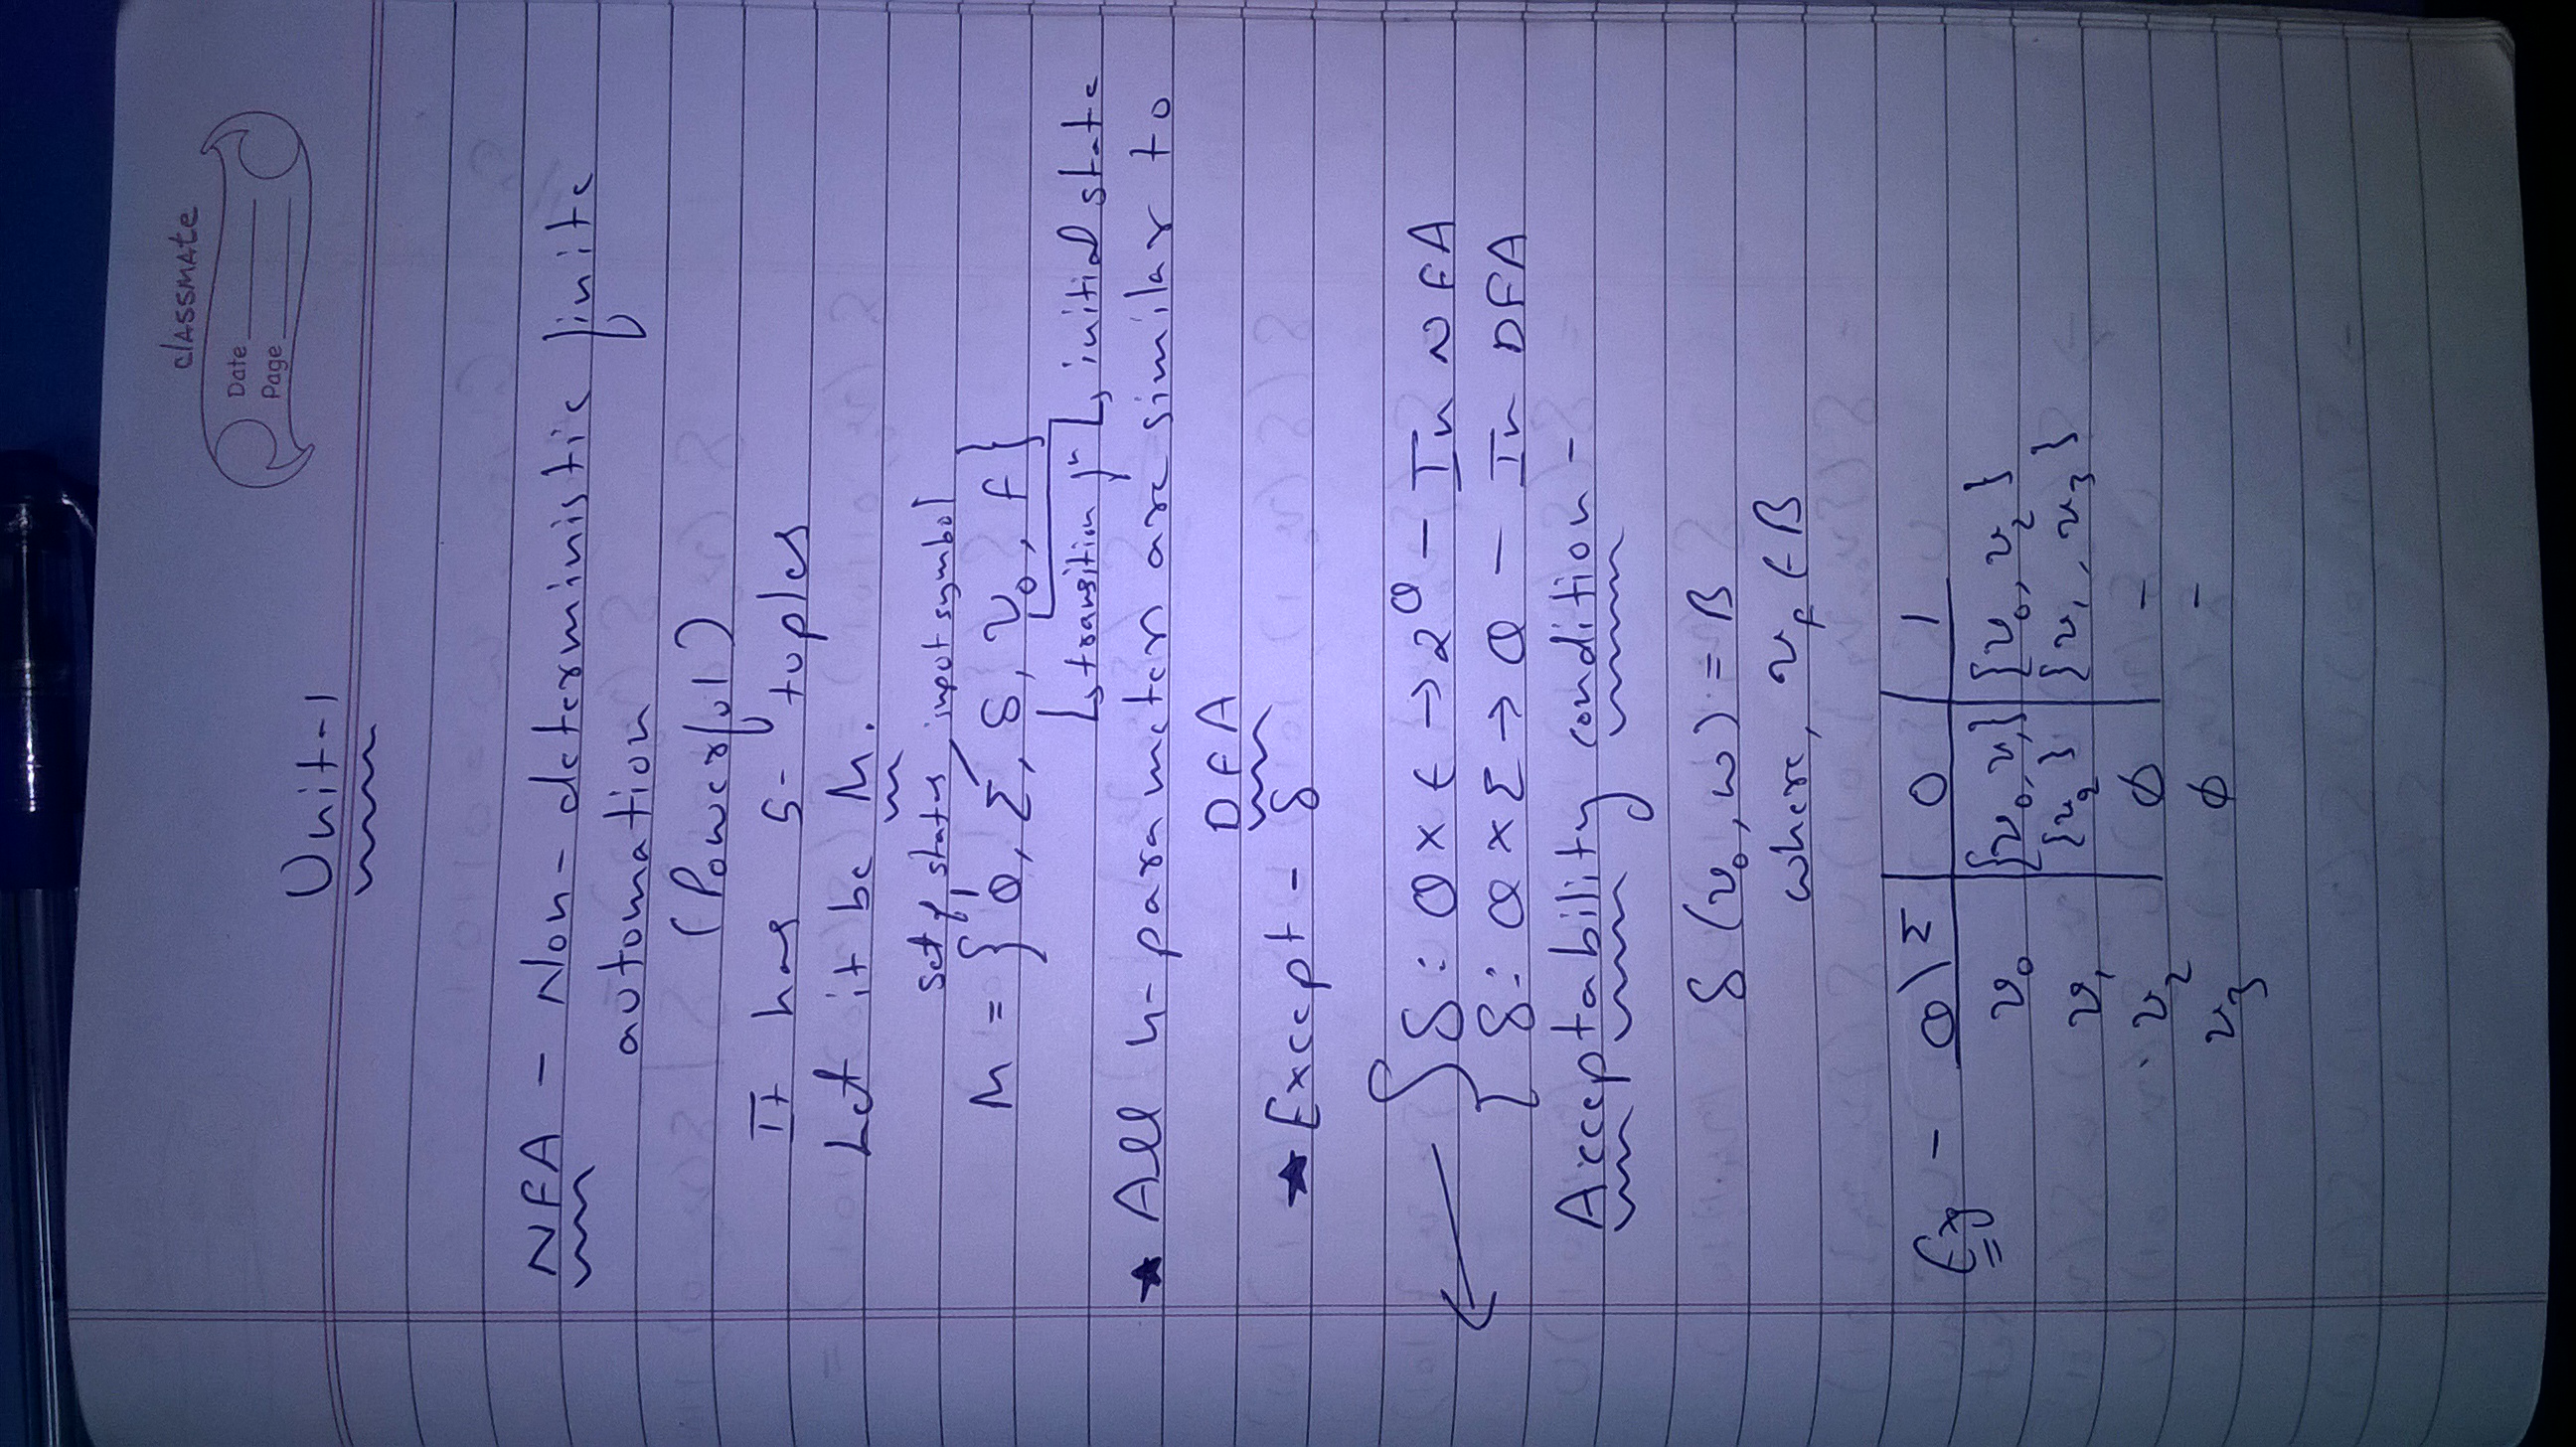 classmate
Date
Page
Unit-1
NFA - Non-deterministic finite
automation
(Powerful)
It has 5-tuples
Let it be M.
set of states, input symbol
M = {Q, Σ, δ, v₀, F}
↳ transition fⁿ ↳ initial state
★ All 4-parameters are similar to
DFA
★ Except - δ
δ: Q × ϵ → 2^Q - In NFA
δ: Q × Σ → Q - In DFA
Acceptability condition -
δ (v₀, w) = B
where, v_F ∈ B
Eg - Q\Σ | 0 | 1
v₀ | {v₀, v₁} | {v₀, v₂}
v₁ | {v₂} | {v₁, v₃}
v₂ | ϕ | -
v₃ ϕ -